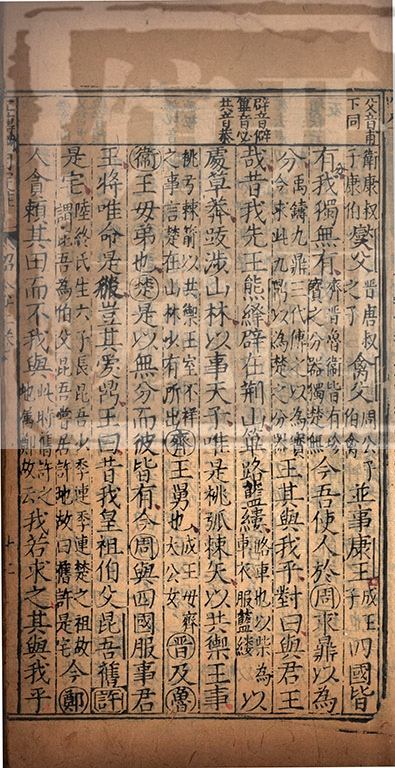 父音甫
下同
衛康叔子康伯燮父晉唐叔之子禽父周公子伯禽並事康王成王子四國皆
有我獨無有齊晉魯衛皆有珍寶之分器獨楚無今吾使人於周求鼎以為
分禹鑄九鼎三代傳之以為寶今求此九鼎以為楚之分器王其與我乎對曰與君王
辟音僻
篳音必
共音恭
哉昔我先王熊繹辟在荊山篳路藍縷路車也以柴為車衣服藍縷以
處草莽跋涉山林以事天子唯是桃弧棘矢以共禦王事
桃弓棘箭以共禦王室不祥之事言楚在山林少有所出齊王舅也成王母齊大公女晉及魯
衛王母弟也楚是以無分而彼皆有今周與四國服事君
王將唯命是從豈其愛鼎王曰昔我皇祖伯父昆吾舊許
是宅陸終氏生六子長昆吾少季連季連楚之祖故謂昆吾為伯父昆吾曾居許地故曰舊許是宅今鄭
人貪賴其田而不我與此時舊許之地屬鄭故云我若求之其與我乎